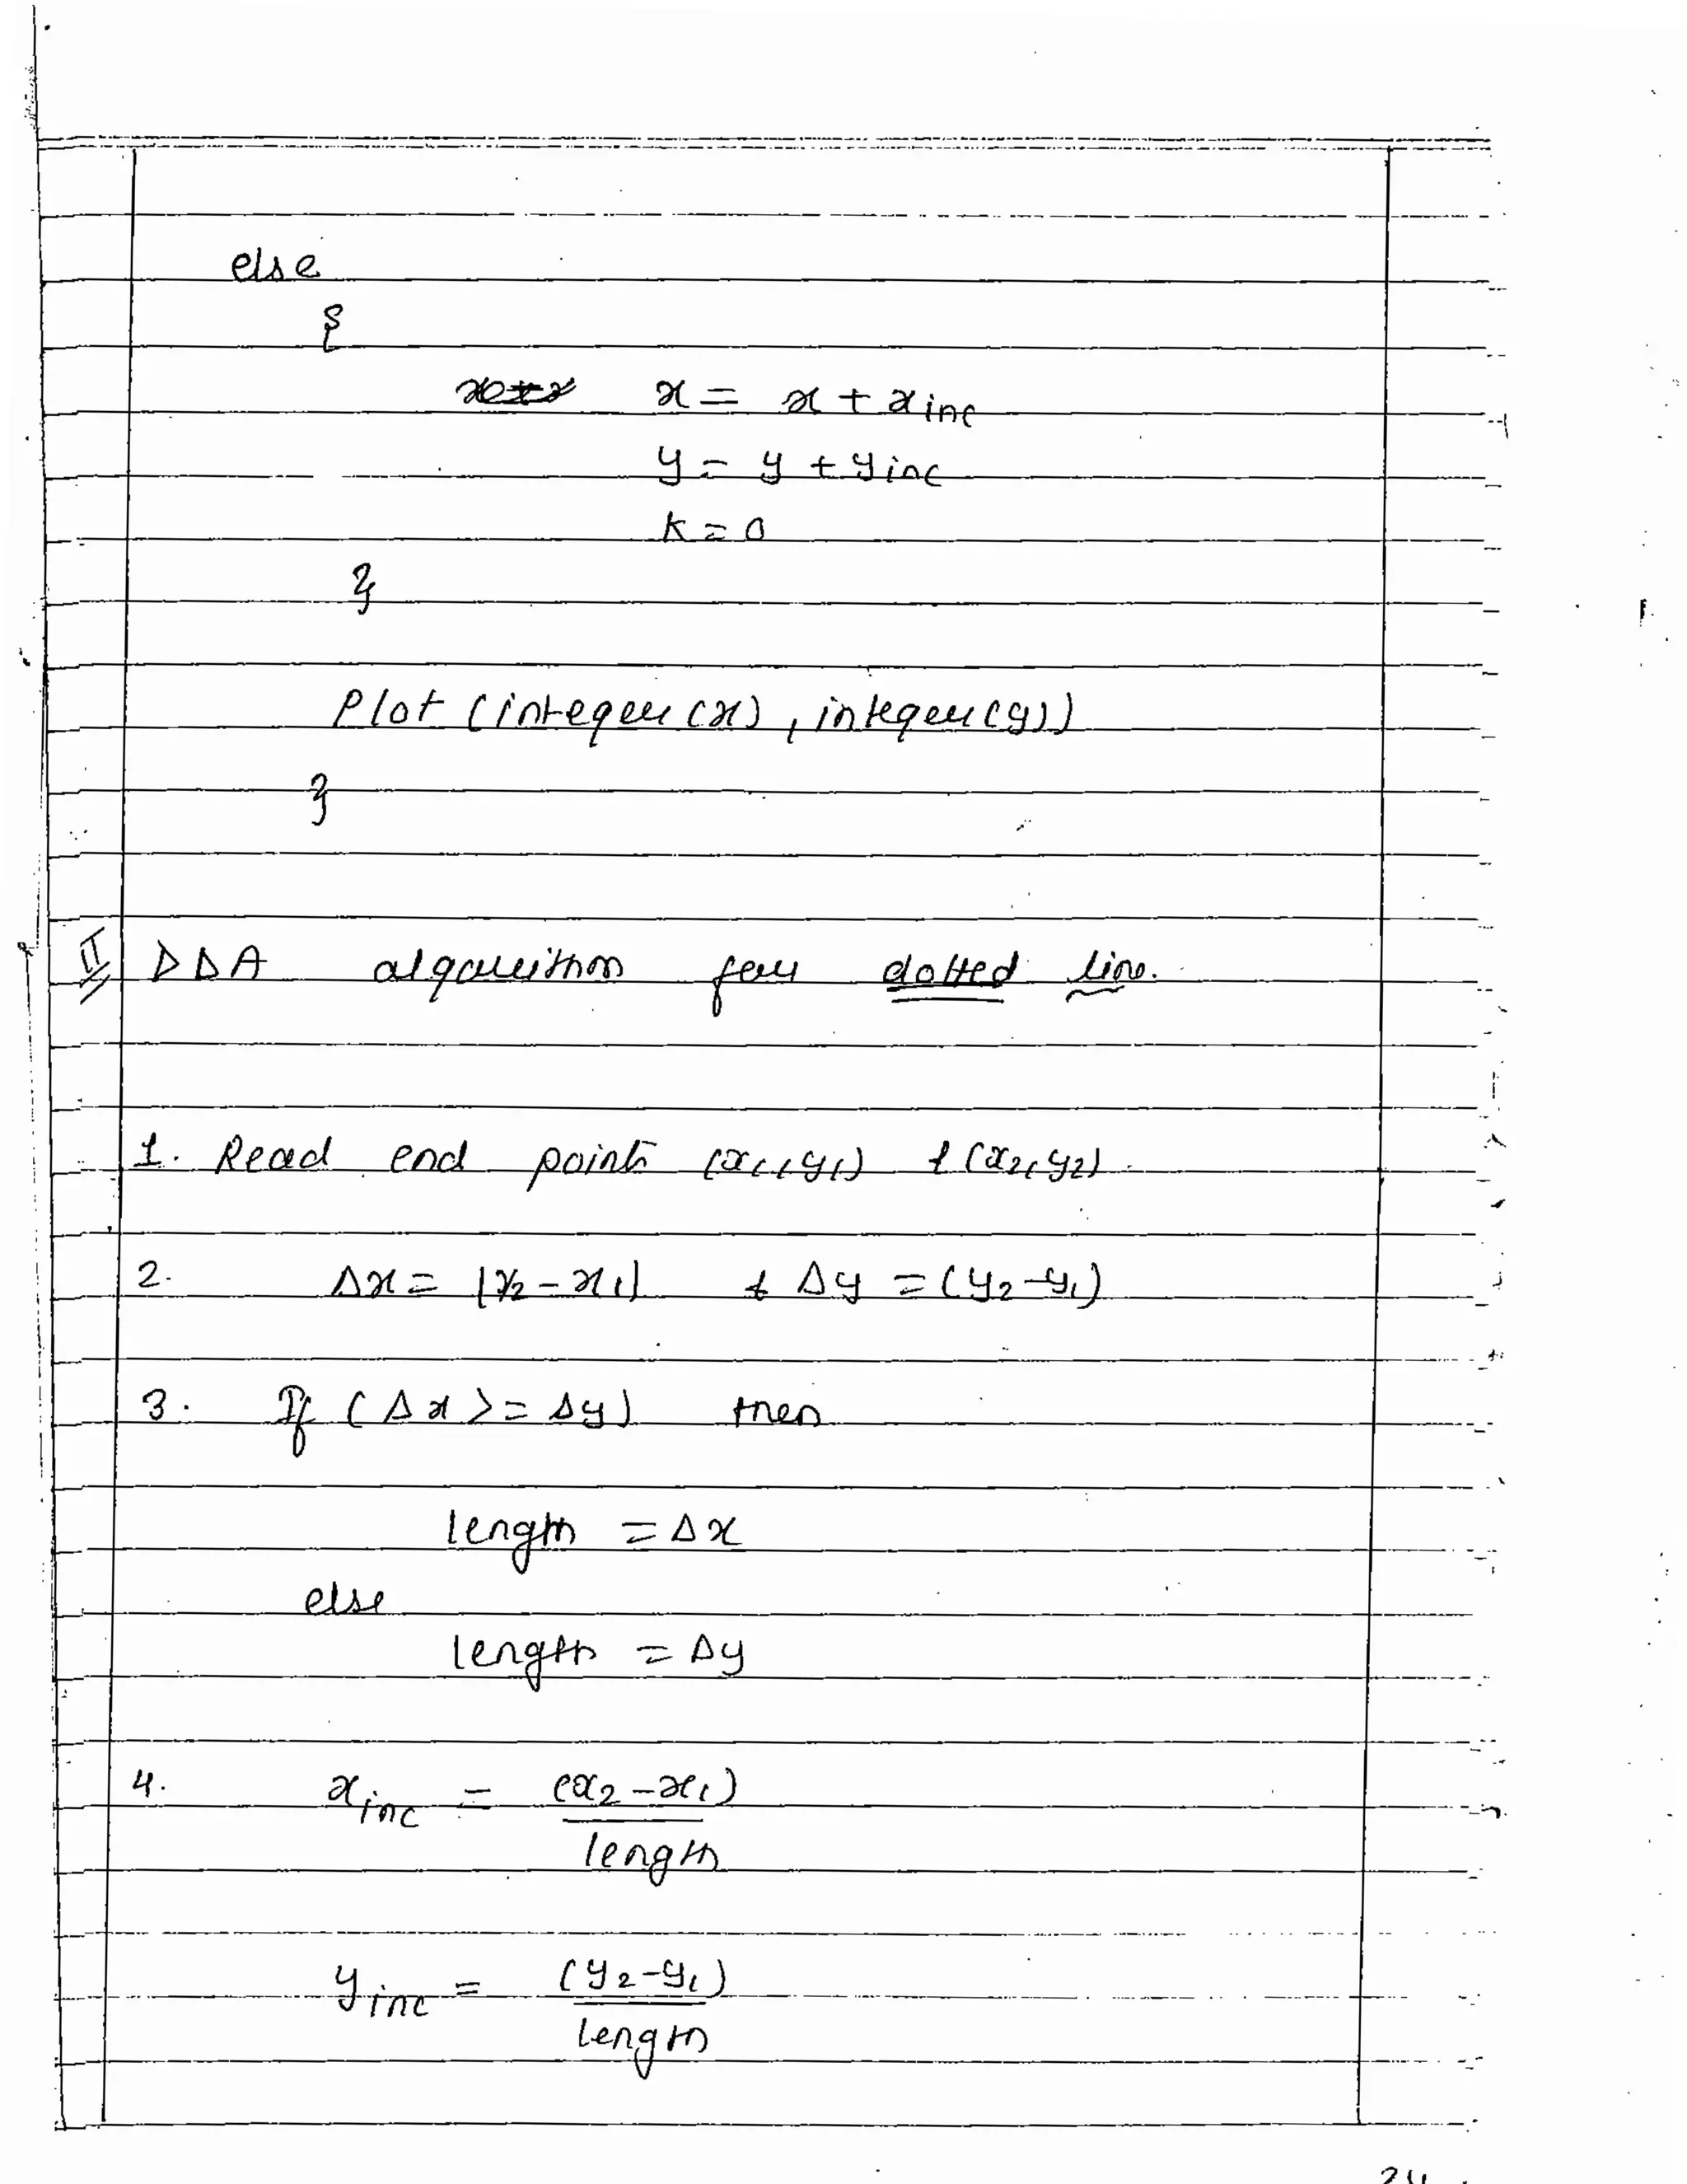 else
{
x = x + xinc
y = y + yinc
k = 0
}
Plot (integer (x), integer (y))
}
II DDA algorithm for dotted line.
1. Read end points (x1, y1) & (x2, y2).
2. Δx = |x2 - x1| & Δy = (y2 - y1)
3. If (Δx >= Δy) then
length = Δx
else
length = Δy
4. xinc = (x2 - x1)
length
yinc = (y2 - y1)
length
24